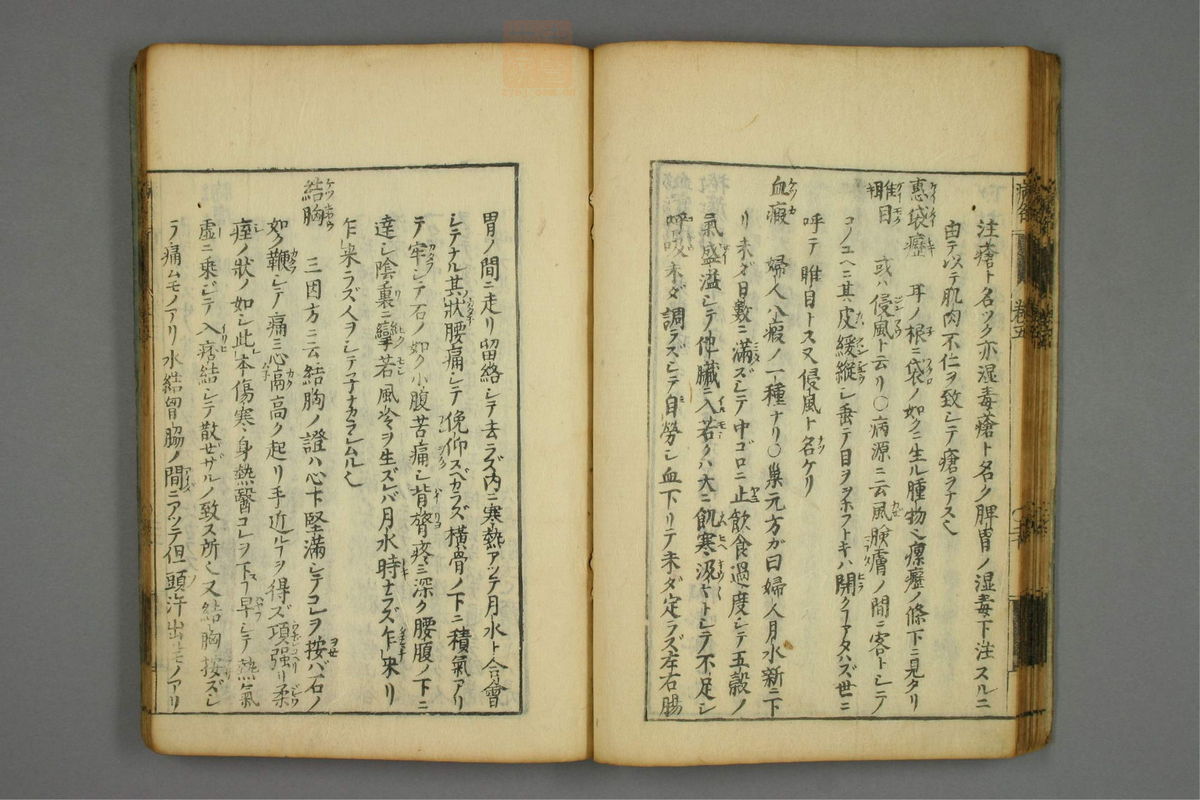 注瘡ト名ツク亦湿毒瘡ト名ク脾胃ノ湿毒下注スルニ
由テ以テ肌肉不仁ヲ致シテ瘡ヲナス
恵袋癧 耳ノ根ニ袋ノ如クニ生ル腫物 瘰癧ノ條下ニ見タリ
睢目 或ハ侵風ト云リ〇病源ニ云風 膚ノ間ニ客トシテ
コノユヘニ其皮緩縦シ垂テ目ヲヲホフトキハ開クーアタハズ世ニ
呼テ睢目トス又侵風ト名ケリ
血瘕 婦人八瘕ノ一種ナリ〇巢元方ガ曰婦人月水新ニ下
リ未ダ日數ニ滿ズシテ中ゴロニ止 飲食過度シテ五穀ノ
氣盛溢シテ他臓ニ入若クハ大ニ飢寒 トシテ不足シ
呼吸未ダ調ラズシテ自勞シ血下リテ未ダ定ラズ左右腸
胃ノ間ニ走リ留絡シテ去ラズ内ニ寒熱アッテ月水ト合會
シテナル其狀腰痛シテ俛仰スベカラズ横骨ノ下ニ積氣アリ
テ牢シテ石ノ如ク小腹苦痛シ背膂疼ミ深ク腰腹ノ下ニ
達シ陰裏ニ 若風冷ヲ生ズレバ月水時ナラズ乍來リ
乍來ラズ人ヲシテ子ナカラシムル
結胸 三因方ニ云結胸ノ證ハ心下堅滿シテコレヲ按バ石ノ
如ク鞕シテ痛ミ心 高ク起リ手近ルーヲ得ズ項強リ柔
痓ノ狀ノ如シ此 本傷寒身熱醫コレヲ下スー早シテ熱氣
虚ニ乘ジテ入痞結シテ散ゼザルノ致ス所 又結胸按ズシ
テ痛ムモノアリ水結胷脇ノ間ニアッテ但頭汗出 モノアリ